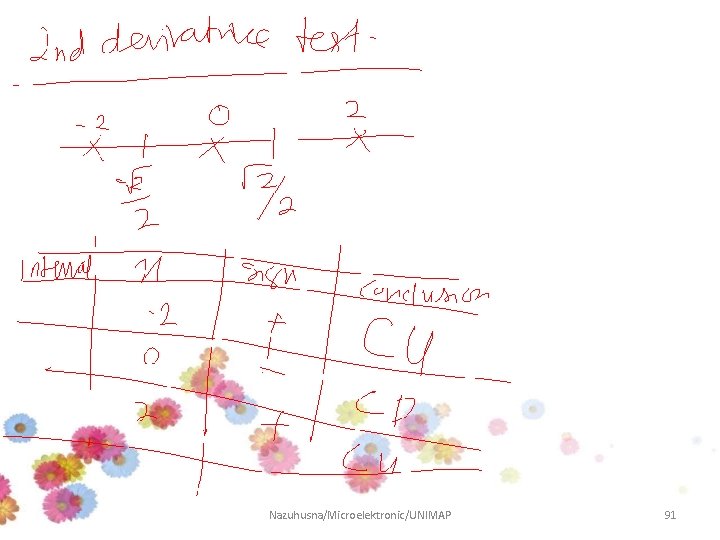 2nd derivative test.
-2 0 2
-√2/2 √2/2
Interval x sign conclusion
-2 + CU
0 - CD
2 + CU
Nazuhusna/Microelektronic/UNIMAP 91